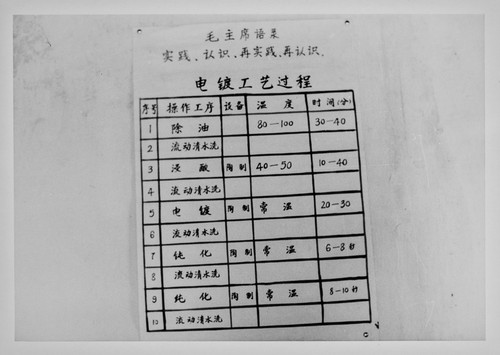 毛主席语录
实践、认识、再实践、再认识.
电镀工艺过程
序号 操作工序 设备 温度 时间(分)
1 除油 80-100 30-40
2 流动清水洗
3 浸酸 陶制 40-50 10-40
4 流动清水洗
5 电镀 陶制 常温 20-30
6 流动清水洗
7 钝化 陶制 常温 6-8秒
8 流动清水洗
9 钝化 陶制 常温 8-10秒
10 流动清水洗